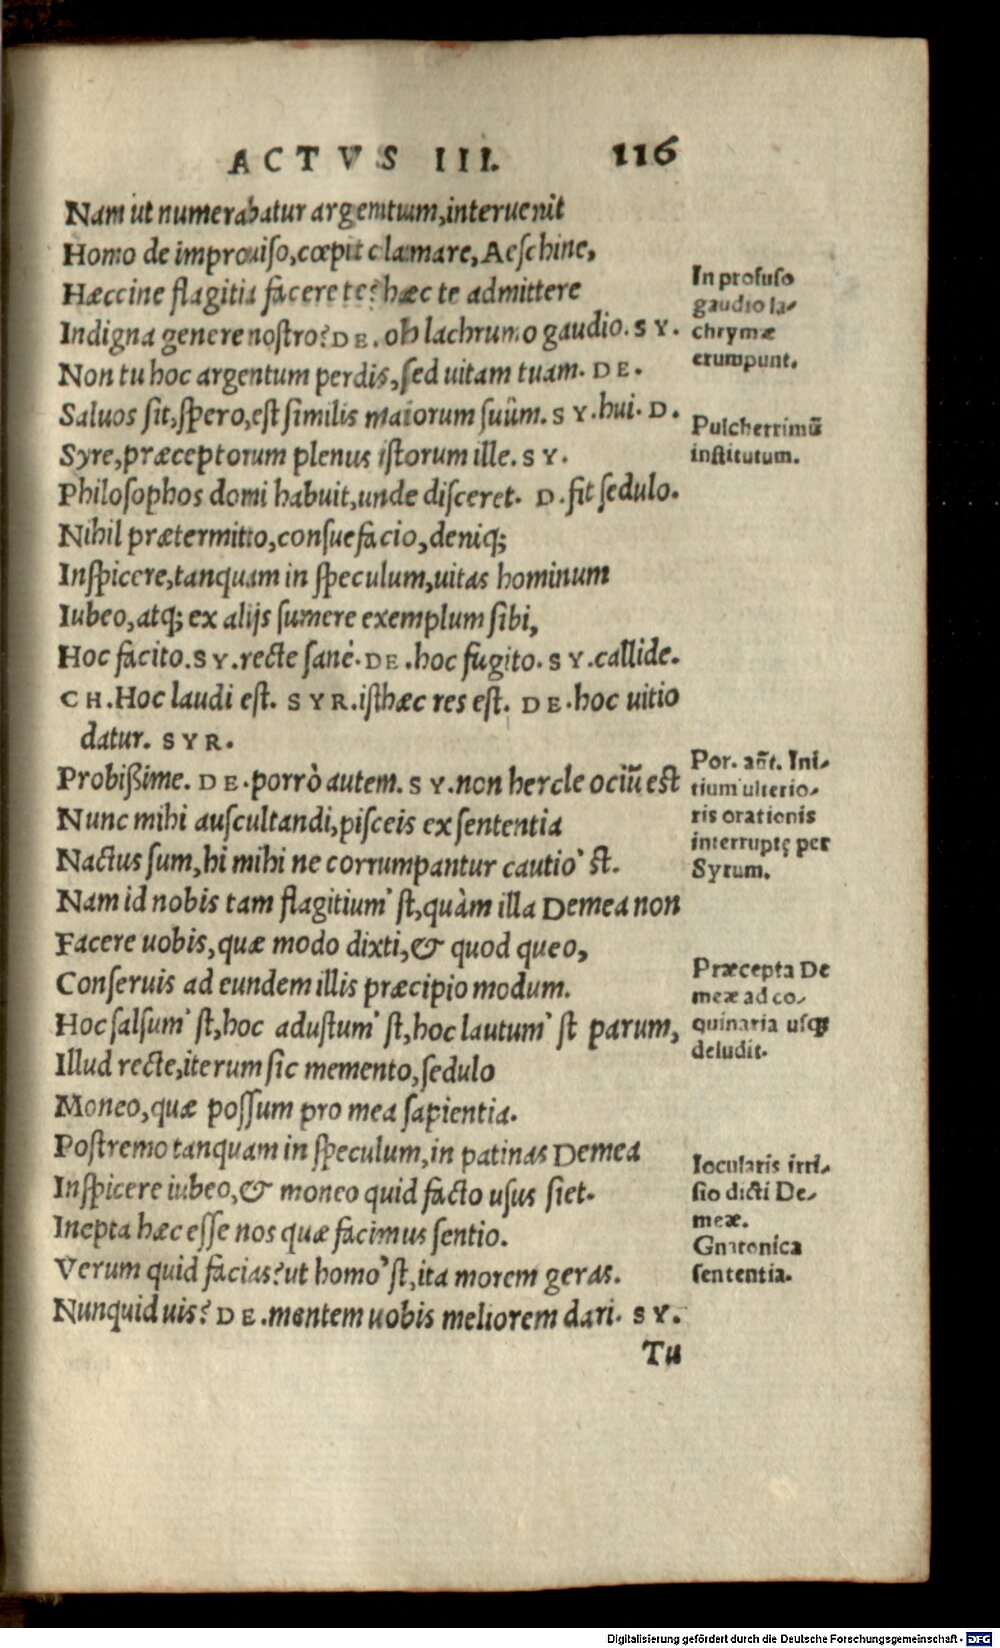 ACTVS III. 116
Nam ut numerabatur argentum, interuenit
Homo de improuiso, cœpit clamare, Aeschine,
Hæccine flagitia facere te? hæc te admittere
Indigna genere nostro? DE. oh lachrumo gaudio. SY.
Non tu hoc argentum perdis, sed uitam tuam. DE.
Saluos sit, spero, est similis maiorum suûm. SY. hui. D.
Syre, præceptorum plenus istorum ille. SY.
Philosophos domi habuit, unde disceret. D. fit sedulo.
Nihil prætermitto, consuefacio, deniq;
Inspicere, tanquam in speculum, uitas hominum
Iubeo, atq; ex alijs sumere exemplum sibi,
Hoc facito. SY. recte sanè. DE. hoc fugito. SY. callide.
CH. Hoc laudi est. SYR. isthæc res est. DE. hoc uitio
datur. SYR.
Probißime. DE. porrò autem. SY. non hercle ociũ est
Nunc mihi auscultandi, pisceis ex sententia
Nactus sum, hi mihi ne corrumpantur cautio' st.
Nam id nobis tam flagitium' st, quàm illa Demea non
Facere uobis, quæ modo dixti, & quod queo,
Conseruis ad eundem illis præcipio modum.
Hoc salsum' st, hoc adustum' st, hoc lautum' st parum,
Illud recte, iterum sic memento, sedulo
Moneo, quæ possum pro mea sapientia.
Postremo tanquam in speculum, in patinas Demea
Inspicere iubeo, & moneo quid facto usus siet.
Inepta hæc esse nos quæ facimus sentio.
Verum quid facias? ut homo' st, ita morem geras.
Nunquid uis? DE. mentem uobis meliorem dari. SY.
Tu
In profuso
gaudio la-
chrymæ
erumpunt.
Pulcherrimũ
institutum.
Por. añt. Ini-
tium ulterio-
ris orationis
interruptę per
Syrum.
Præcepta De
meæ ad co-
quinaria usq;
deludit.
Iocularis irri-
sio dicti De-
meæ.
Gnatonica
sententia.
Digitalisierung gefördert durch die Deutsche Forschungsgemeinschaft - DFG